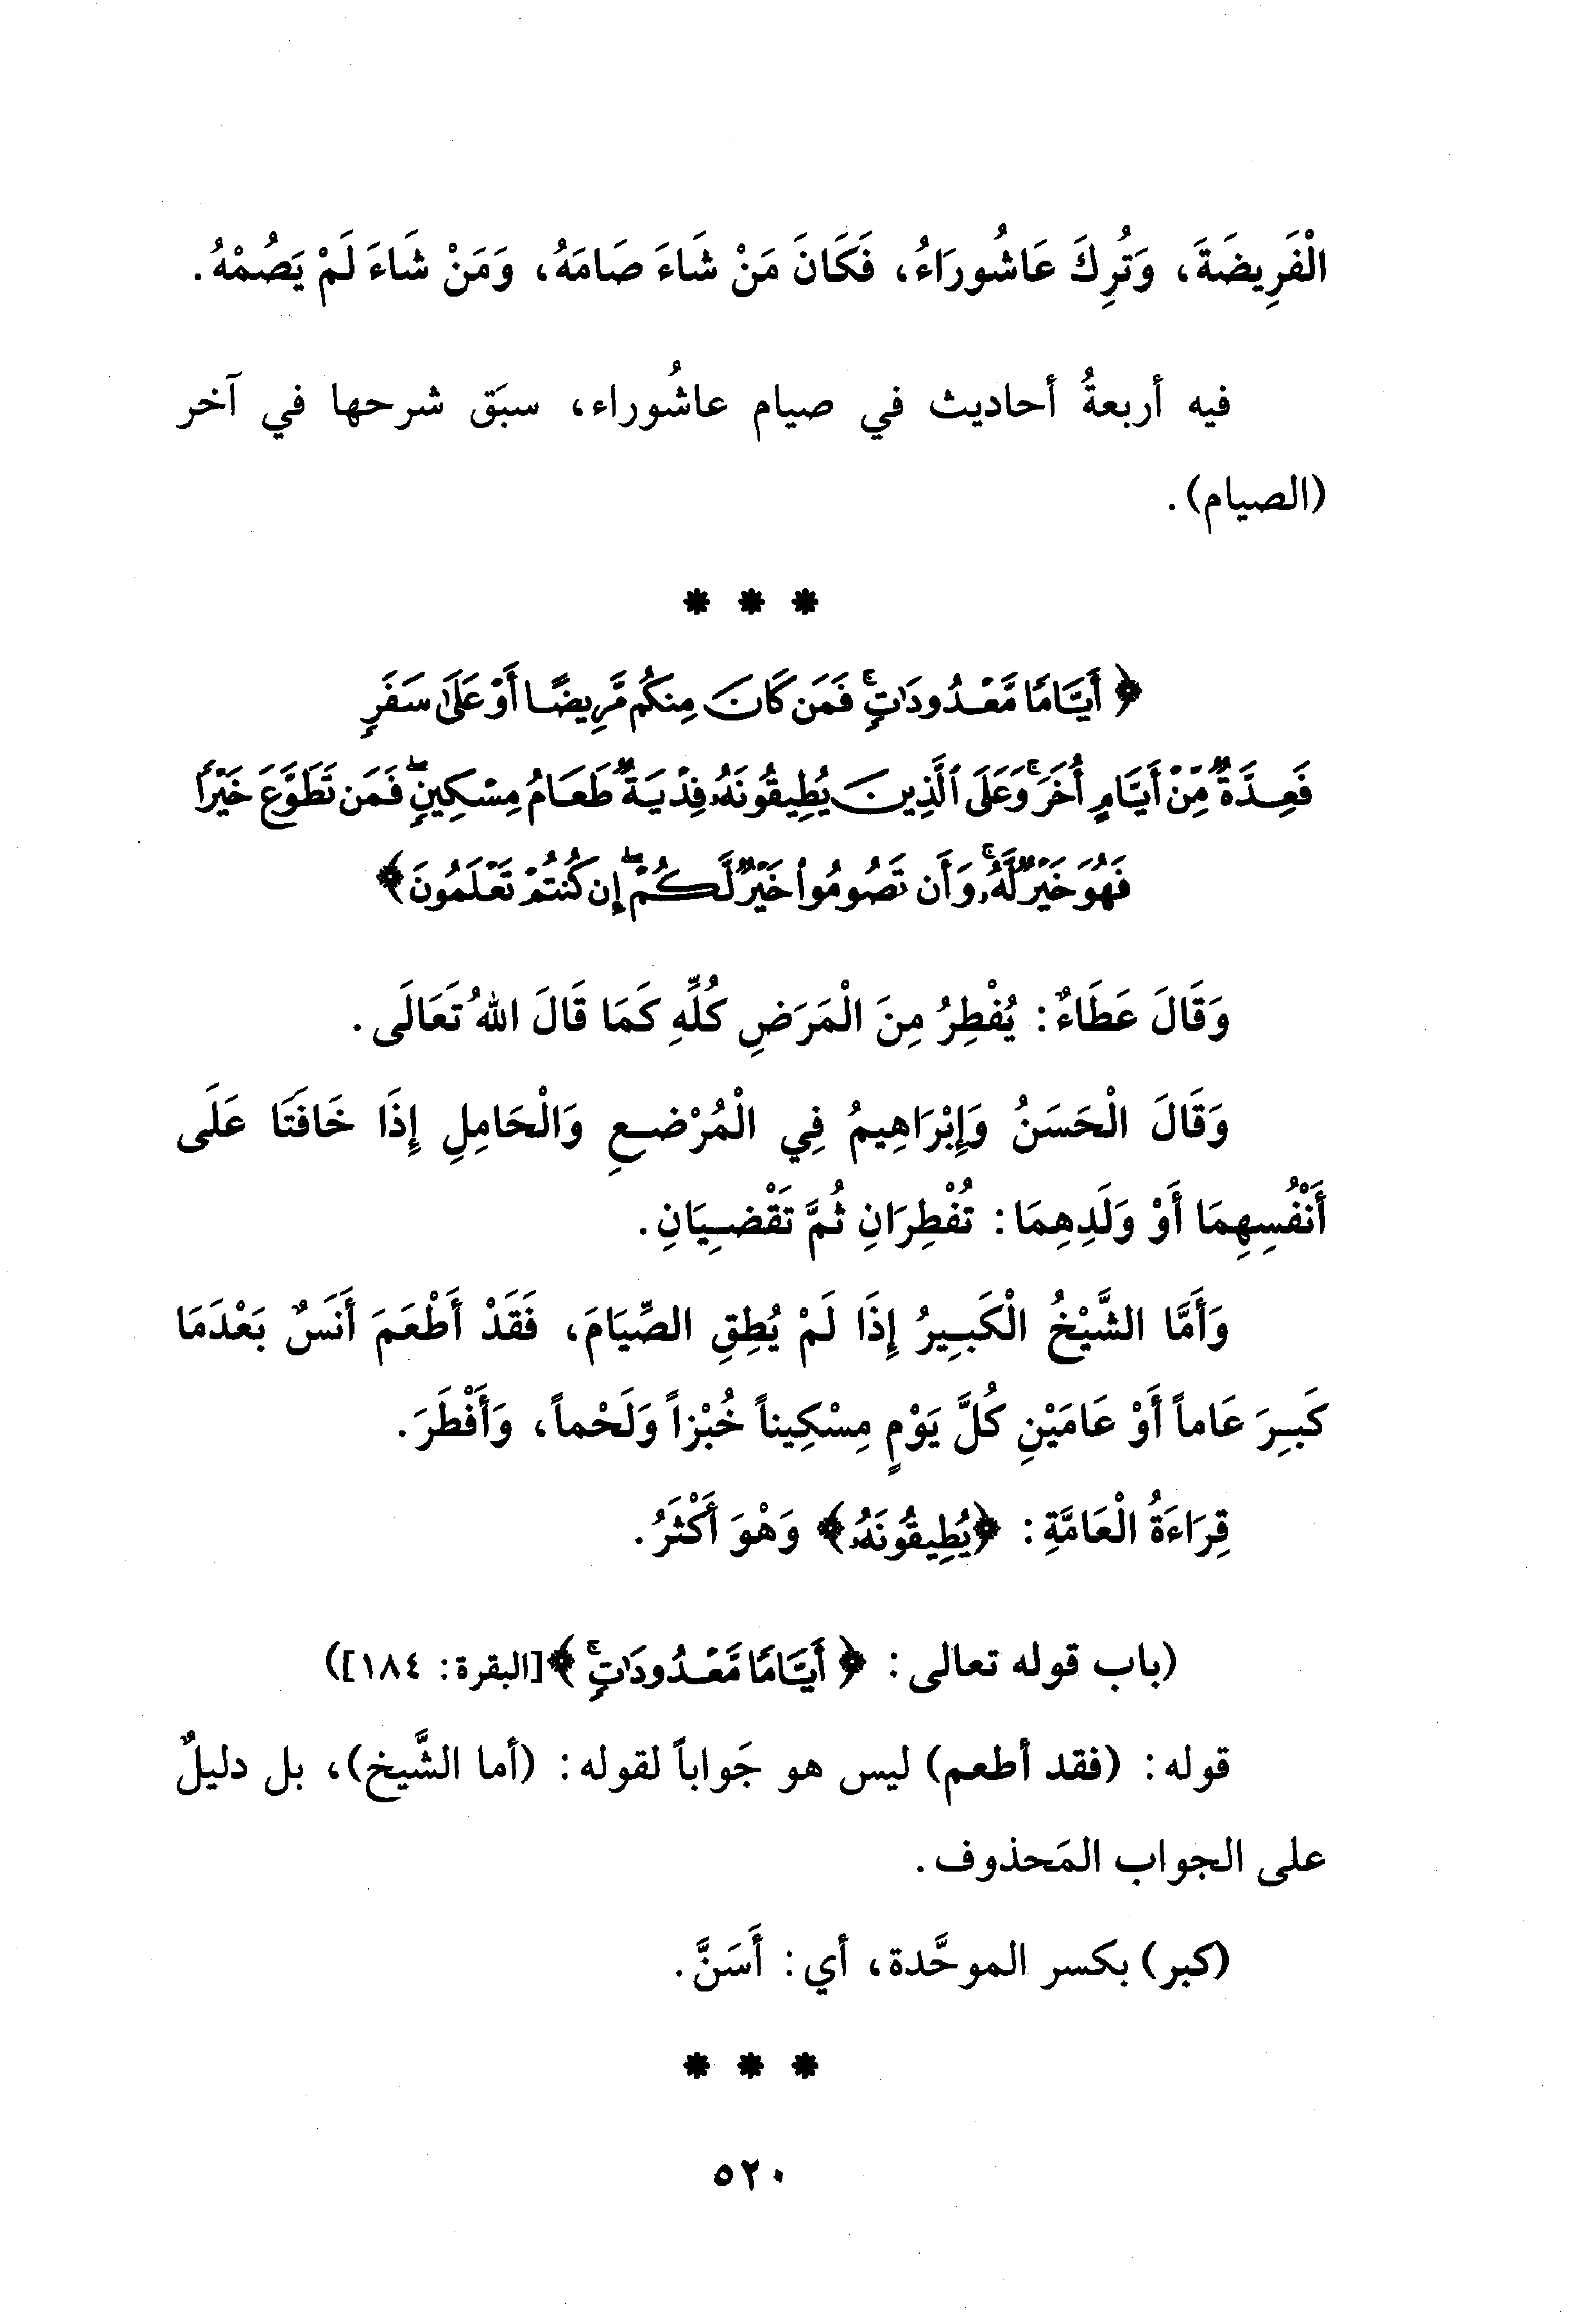 الْفَرِيضَةَ، وَتُرِكَ عَاشُورَاءُ، فَكَانَ مَنْ شَاءَ صَامَهُ، وَمَنْ شَاءَ لَمْ يَصُمْهُ.
فيه أربعةُ أحاديث في صيام عاشُوراء، سبَق شرحها في آخر
(الصيام).
* * *
﴿أَيَّامًا مَّعْدُودَٰتٍۚ فَمَن كَانَ مِنكُم مَّرِيضًا أَوْ عَلَىٰ سَفَرٍ
فَعِدَّةٌ مِّنْ أَيَّامٍ أُخَرَۚ وَعَلَى ٱلَّذِينَ يُطِيقُونَهُۥ فِدْيَةٌ طَعَامُ مِسْكِينٍۖ فَمَن تَطَوَّعَ خَيْرًا
فَهُوَ خَيْرٌ لَّهُۥۚ وَأَن تَصُومُوا۟ خَيْرٌ لَّكُمْۖ إِن كُنتُمْ تَعْلَمُونَ﴾
وَقَالَ عَطَاءٌ: يُفْطِرُ مِنَ الْمَرَضِ كُلِّهِ كَمَا قَالَ اللهُ تَعَالَى.
وَقَالَ الْحَسَنُ وَإِبْرَاهِيمُ فِي الْمُرْضِعِ وَالْحَامِلِ إِذَا خَافَتَا عَلَى
أَنْفُسِهِمَا أَوْ وَلَدِهِمَا: تُفْطِرَانِ ثُمَّ تَقْضِيَانِ.
وَأَمَّا الشَّيْخُ الْكَبِيرُ إِذَا لَمْ يُطِقِ الصِّيَامَ، فَقَدْ أَطْعَمَ أَنَسٌ بَعْدَمَا
كَبِرَ عَاماً أَوْ عَامَيْنِ كُلَّ يَوْمٍ مِسْكِيناً خُبْزاً وَلَحْماً، وَأَفْطَرَ.
قِرَاءَةُ الْعَامَّةِ: ﴿يُطِيقُونَهُۥ﴾ وَهْوَ أَكْثَرُ.
(باب قوله تعالى: ﴿أَيَّامًا مَّعْدُودَٰتٍۚ﴾ [البقرة: ١٨٤])
قوله: (فقد أطعم) ليس هو جَواباً لقوله: (أما الشَّيخ)، بل دليلٌ
على الجواب المَحذوف.
(كبر) بكسر الموحَّدة، أي: أَسَنَّ.
* * *
٥٢٠